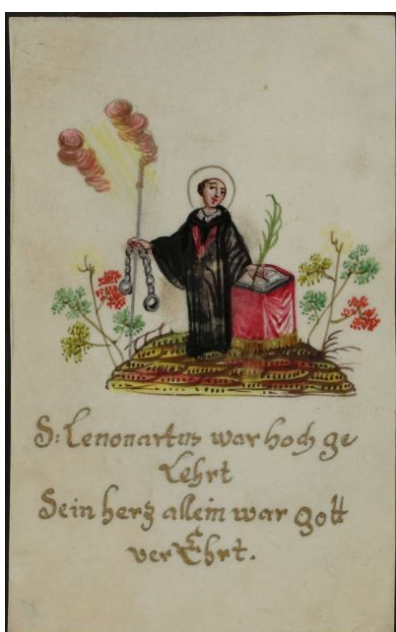 S: Lenonartus war hoch ge
Lehrt
Sein herz allein war gott
ver Ehrt.